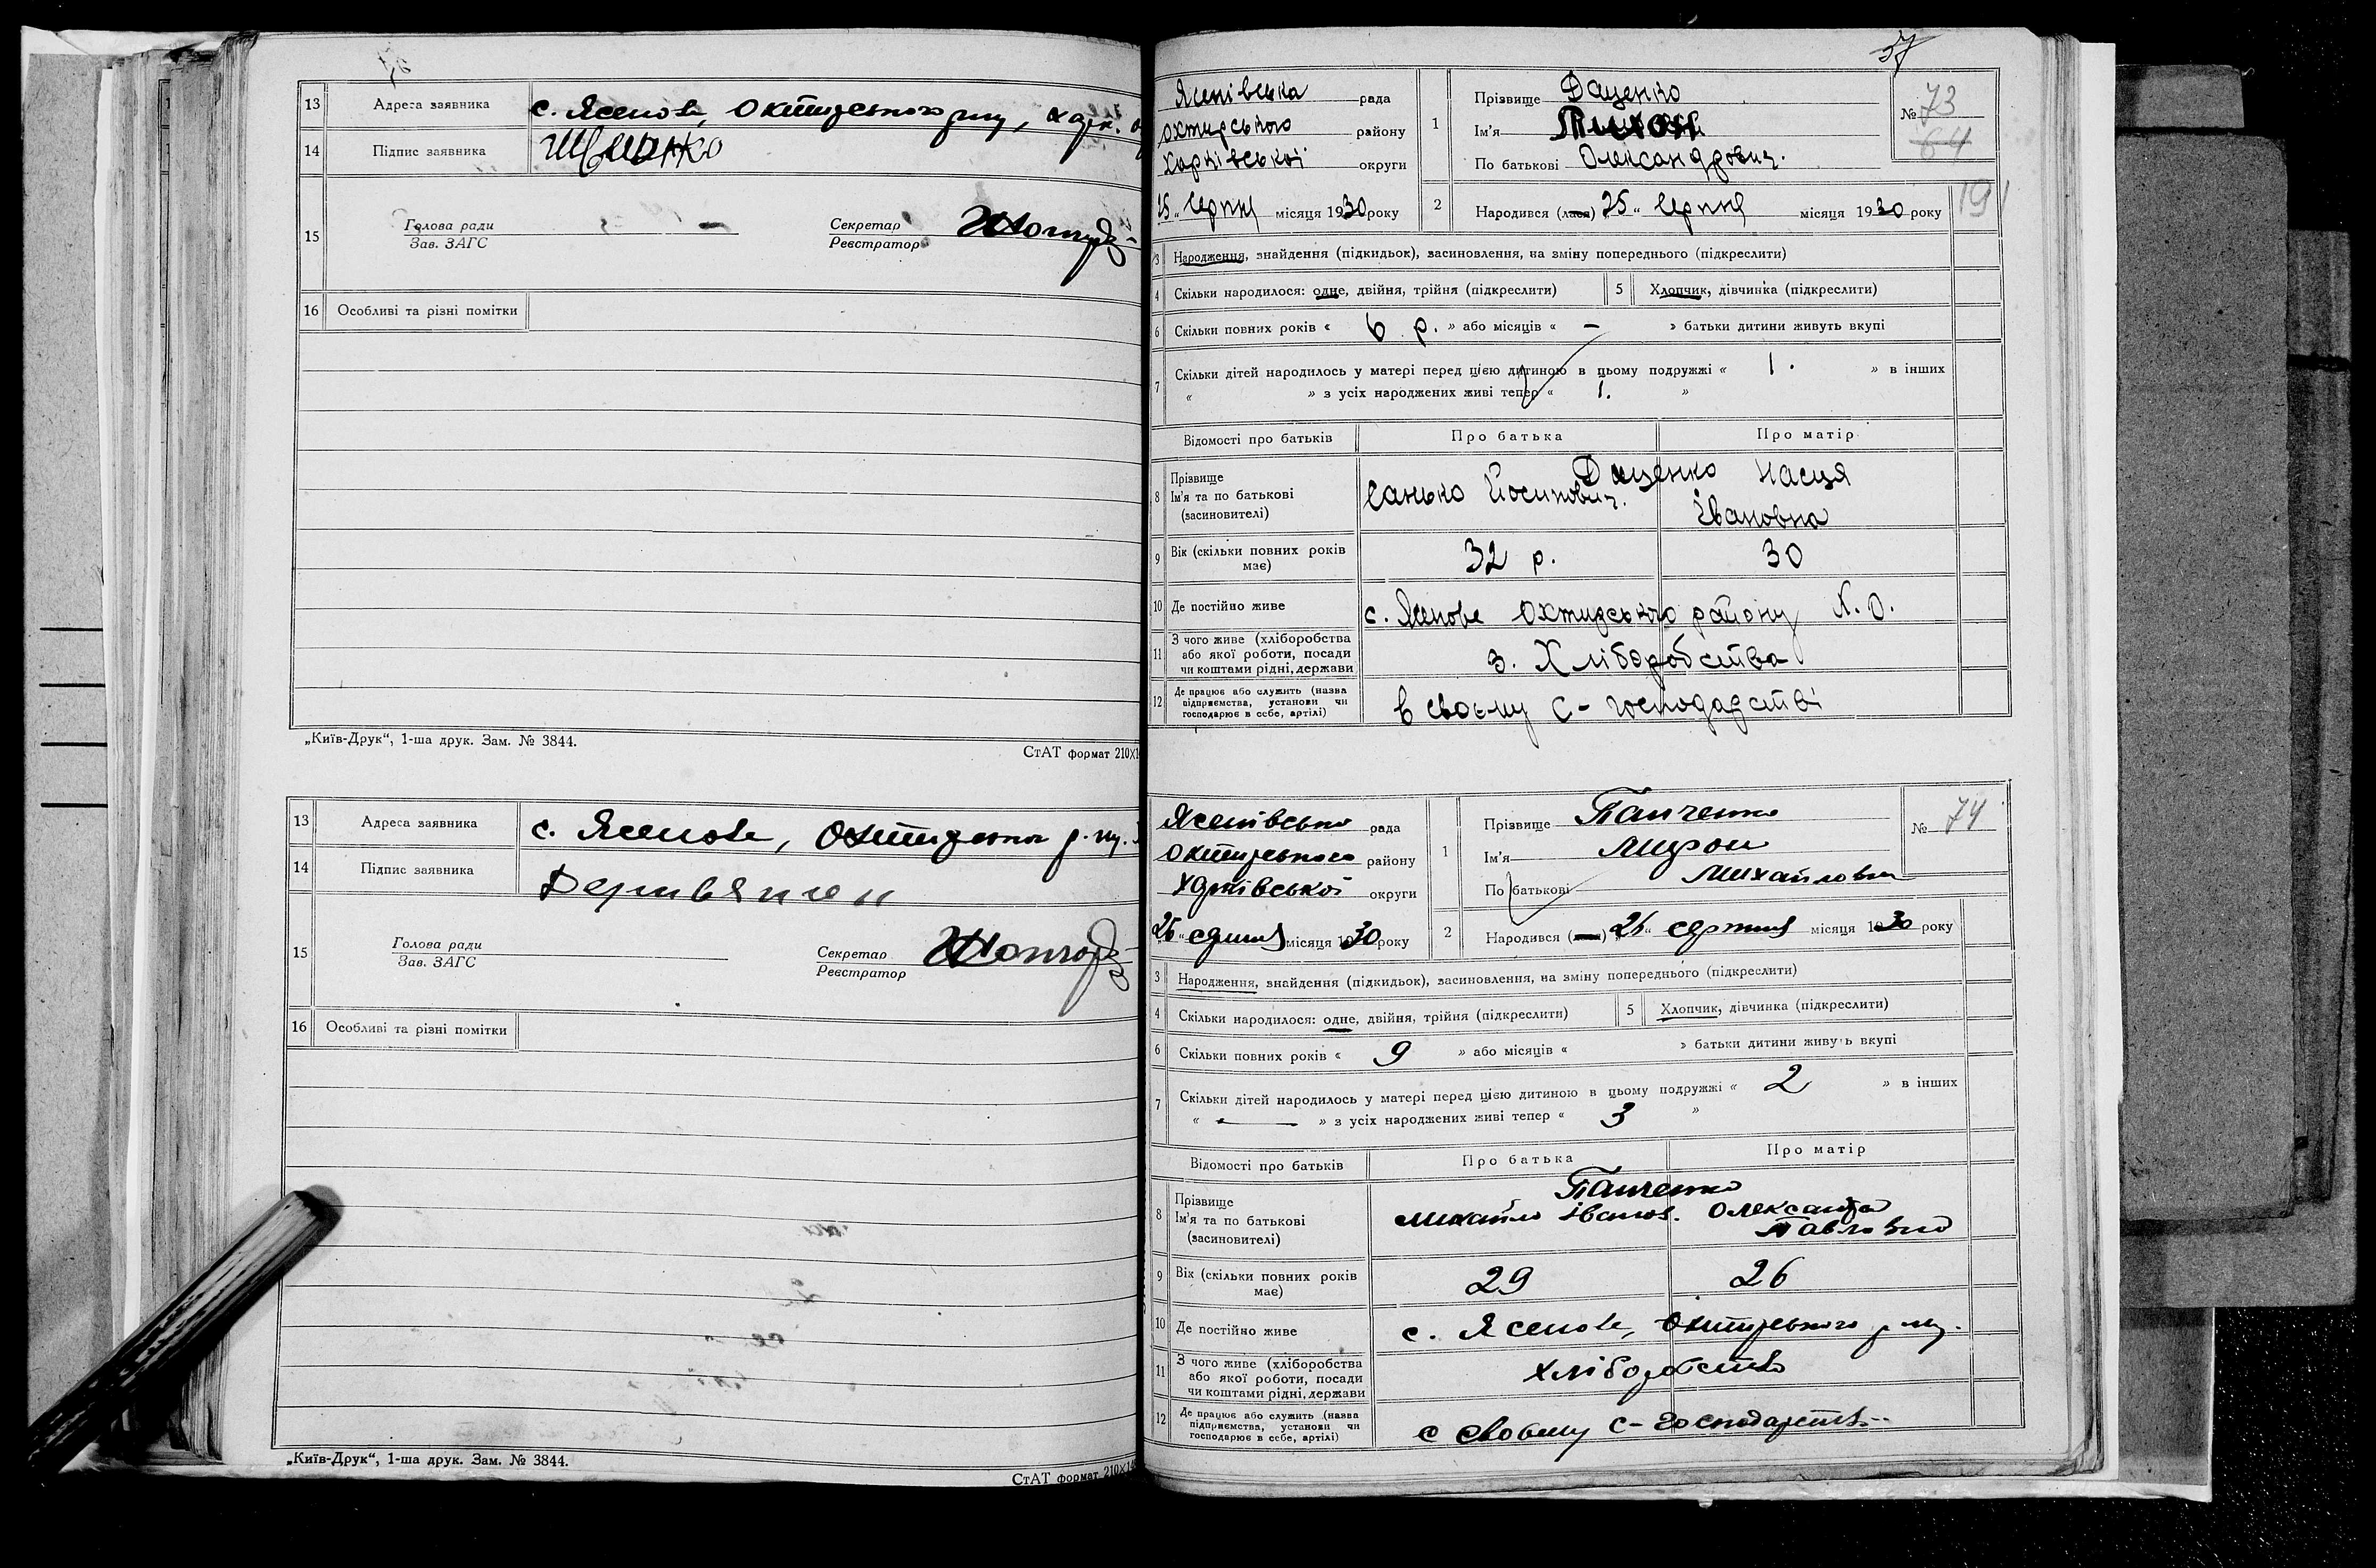 13 Адреса заявника с. Ясенове, Охтирського р-ну, Харк.
14 Підпис заявника
15 Голова ради
Зав. ЗАГС
Секретар
Реєстратор
16 Особливі та різні помітки
„Київ-Друк“, 1-ша друк. Зам. № 3844.
СтАТ формат 210×1
13 Адреса заявника с. Ясенове, Охтирського р-ну.
14 Підпис заявника
15 Голова ради
Зав. ЗАГС
Секретар
Реєстратор
16 Особливі та різні помітки
„Київ-Друк“, 1-ша друк. Зам. № 3844.
СтАТ формат 210×14
37
Ясенівська рада
Охтирського району
Харківської округи
25 „ Серпня місяця 1930 року
1 Прізвище Даценко
Ім'я Тихон
По батькові Олександрович.
№ 73
64
2 Народився (лася) 25 „ Серпня місяця 1930 року
191
3 Народження, знайдення (підкидьок), засиновлення, на зміну попереднього (підкреслити)
4 Скільки народилося: одне, двійня, трійня (підкреслити) 5 Хлопчик, дівчинка (підкреслити)
6 Скільки повних років « 6 р. » або місяців « – » батьки дитини живуть вкупі
7 Скільки дітей народилось у матері перед цією дитиною в цьому подружжі « 1. » в інших
« » з усіх народжених живі тепер « 1. »
Відомості про батьків Про батька Про матір
8 Прізвище Даценко
Ім'я та по батькові Санько Йосипович. Насця
(засиновителі) Івановна
9 Вік (скільки повних років має) 32 р. 30
10 Де постійно живе с. Ясенове Охтирського району Х. О.
11 З чого живе (хліборобства
або якої роботи, посади
чи коштами рідні, держави
З. Хліборобства
12 Де працює або служить (назва
підприємства, установи чи
господарює в себе, артілі)
в своєму с-господарстві
Ясенівська рада
Охтирського району
Харківської округи
26 „ серпня місяця 1930 року
1 Прізвище Панченко
Ім'я Мифон
По батькові Михайлович
№ 74
2 Народився 26 „ серпня місяця 1930 року
3 Народження, знайдення (підкидьок), засиновлення, на зміну попереднього (підкреслити)
4 Скільки народилося: одне, двійня, трійня (підкреслити) 5 Хлопчик, дівчинка (підкреслити)
6 Скільки повних років « 9 » або місяців « » батьки дитини живуть вкупі
7 Скільки дітей народилось у матері перед цією дитиною в цьому подружжі « 2 » в інших
« — » з усіх народжених живі тепер « 3 »
Відомості про батьків Про батька Про матір
8 Прізвище Панченко
Ім'я та по батькові Михайло Іванов. Олександра
(засиновителі) Павловна
9 Вік (скільки повних років має) 29 26
10 Де постійно живе с. Ясенове, Охтирського р-ну.
11 З чого живе (хліборобства
або якої роботи, посади
чи коштами рідні, держави
хліборобства
12 Де працює або служить (назва
підприємства, установи чи
господарює в себе, артілі)
в своєму с-господарстві